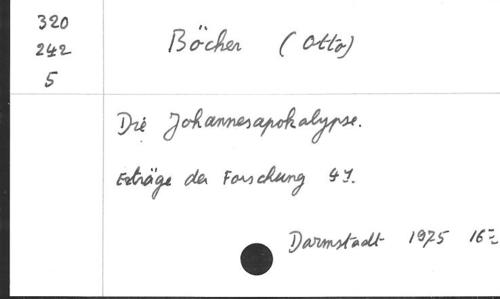 320
242
5
Böcher (Otto)
Die Johannesapokalypse.
Erträge der Forschung 41.
Darmstadt 1975 16º